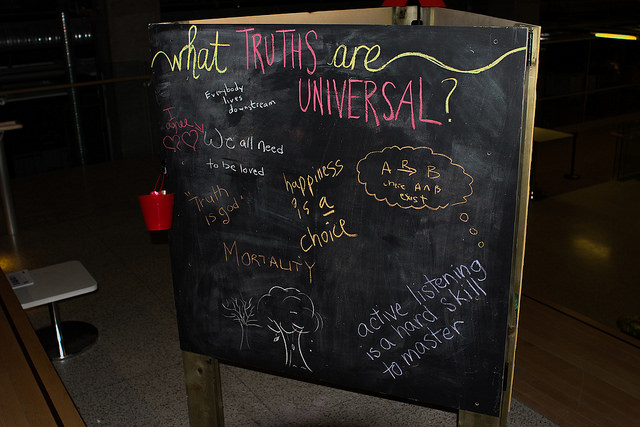 what TRUTHS are
UNIVERSAL?
Everybody
lives
downstream
I
We all need
to be loved
"Truth
is god"
happiness
is a
choice
A R B
where A ∧ B
exist
MORTALITY
active listening
is a hard skill
to master